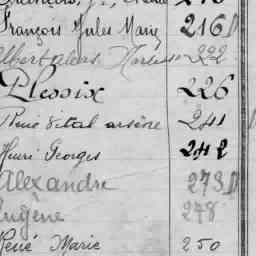 François Jules Marie 216
222
Plessix 226
René Vital arsène 241
Henri Georges 242
Alexandre 273
Eugène 278
René Marie 250